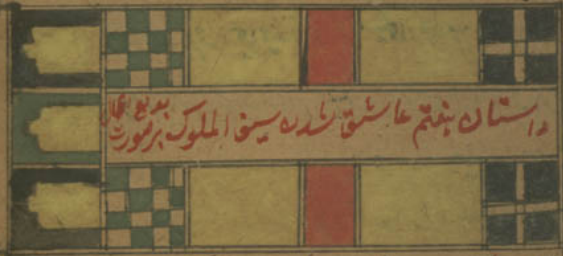 داستان هفتم عاشق شدن سیف الملوک بر صورت بدیع الجمال